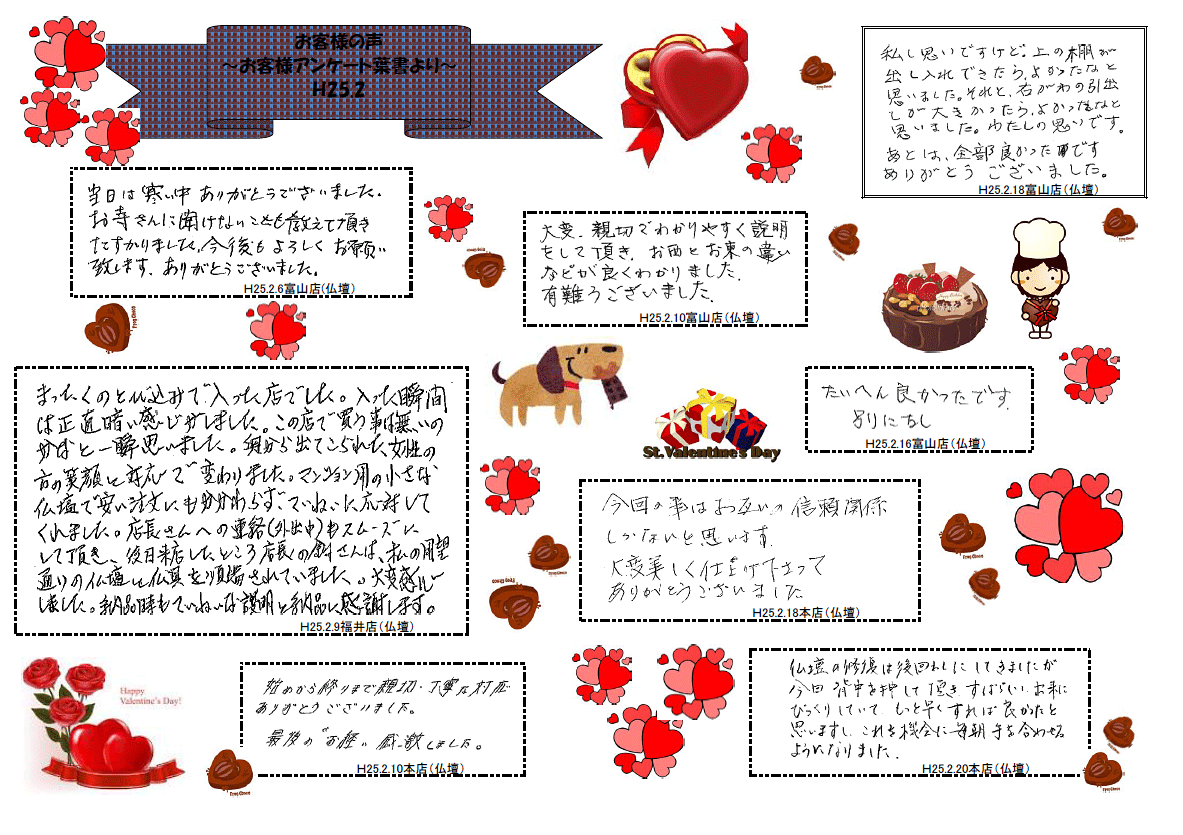 お客様の声
～お客様アンケート葉書より～
H25.2
私し思いですけど、上の棚が
出し入れできたら、よかったなと
思いました。それと、右がわの引出
しが大きかったら、よかったなと
思いました。わたしの思いです。
あとは、全部良かったです
ありがとうございました。
H25.2.18富山店(仏壇)
当日は寒い中ありがとうございました。
お寺さんに聞けないことも教えて頂き
たすかりました。今後もよろしくお願い
致します。ありがとうございました。
H25.2.6富山店(仏壇)
大変、親切でわかりやすく説明
をして頂き、お西とお東の違い
などが良くわかりました。
有難うございました。
H25.2.10富山店(仏壇)
まったくのとび込みで入った店でした。入った瞬間
は正直暗い感じがしました。この店で買う事は無いの
かなと一瞬思いました。奥から出てこられた女性の
方の笑顔と対応で変わりました。マンション用の小さな
仏壇で安い注文にもかかわらず、ていねいに応対して
くれました。店長さんへの連絡(外出中)もスムーズに
して頂き、後日来店したところ店長の さんは、私の用望
通りの仏壇と仏具を り されていました。大変感心
しました。納品時もていねいな説明と納品に感謝します。
H25.2.9福井店(仏壇)
たいへん良かったです。
別になし
H25.2.16富山店(仏壇)
St.Valentine's Day
今回の事はお互いの信頼関係
しかないと思います。
大変美しく仕上げ下さって
ありがとうございました
H25.2.18本店(仏壇)
Happy
Valentine's Day!
始めから終りまで親切・丁寧な対応
ありがとうございました。
最後の"お経"感激しました。
H25.2.10本店(仏壇)
仏壇の修復は後回しにしてきましたが
今回背中を押して頂きすばらしい出来に
びっくりしていて、もっと早くすれば良かたと
思いますし、これを機会に毎朝手を合わせる
ようになりました。
H25.2.20本店(仏壇)